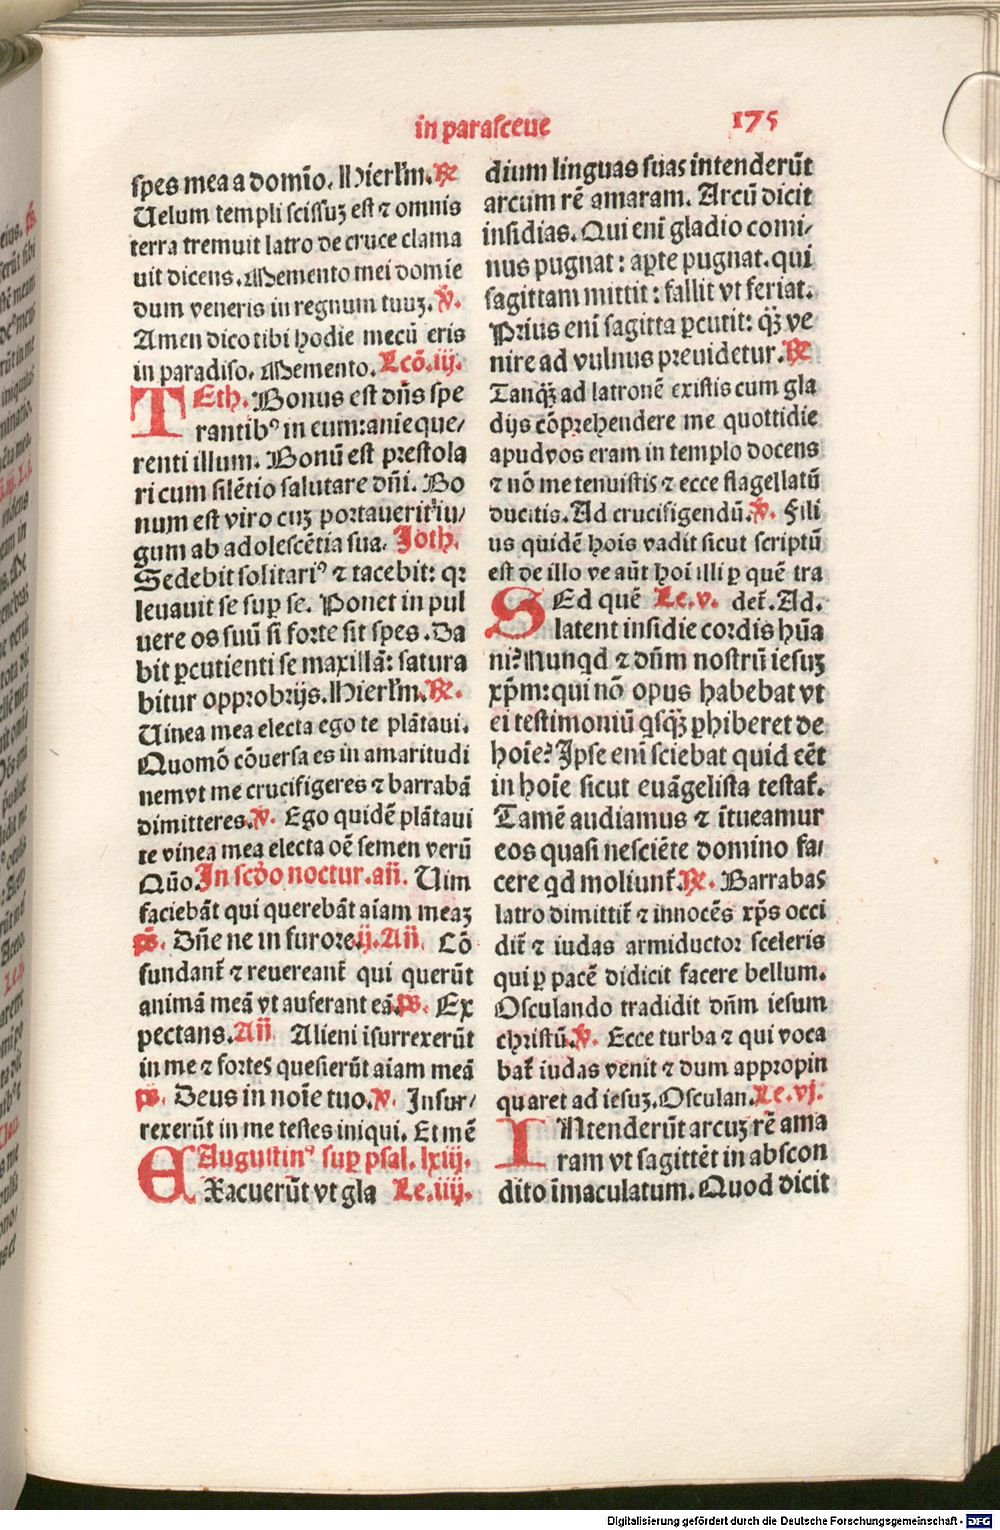 in parasceue 175
spes mea a domīo. Hierłm. ℟
Uelum templi scissuꝫ est ⁊ omnis
terra tremuit latro de cruce clama
uit dicens. Memento mei domie
dum veneris in regnum tuuꝫ. ℣.
Amen dico tibi hodie mecū eris
in paradiso. Memento. Lcō.iij.
TEth. Bonus est dn̄s spe
rantibꝰ in eum: anie que/
renti illum. Bonū est prestola
ri cum silētio salutare dn̄i. Bo
num est viro cuꝫ portauerit iu/
gum ab adolescētia sua. Joth.
Sedebit solitariꝰ ⁊ tacebit: qꝛ
leuauit se suꝑ se. Ponet in pul
uere os suū si forte sit spes. Da
bit ꝑcutienti se maxillā: satura
bitur opprobrijs. Hierłm. ℟.
Uinea mea electa ego te plātaui.
Quomō cōuersa es in amaritudi
nem vt me crucifigeres ⁊ barrabā
dimitteres. ℣. Ego quidē plātaui
te vinea mea electa oē semen verū
Quō. In scd̄o noctur. an̄. Uim
faciebāt qui querebāt aīam meaꝫ
ps̄. Dn̄e ne in furore. ij. An̄. Cō
fundant̄ ⁊ reuereant̄ qui querūt
animā meā vt auferant eā. ps̄. Ex
pectans. An̄ Alieni īsurrexerūt
in me ⁊ fortes quesierūt aīam meā
ps̄. Deus in noīe tuo. ℣. Insur/
rexerūt in me testes iniqui. Et mē
Augustinꝰ suꝑ psal. lxiij.
EXacuerūt vt gla Le.iiij.
dium linguas suas intenderūt
arcum rē amaram. Arcū dicit
insidias. Qui enī gladio comi/
nus pugnat: aꝑte pugnat. qui
sagittam mittit: fallit vt feriat.
Prius enī sagitta ꝑcutit: qꝫ̄ ve
nire ad vulnus preuidetur. ℟
Tanqꝫ̄ ad latronē existis cum gla
dijs cōprehendere me quottidie
apud vos eram in templo docens
⁊ nō me tenuistis ⁊ ecce flagellatū
ducitis. Ad crucifigendū. ℣. Fili
us quidē hoīs vadit sicut scriptū
est de illo ve aūt hoī illi ꝑ quē tra
SEd quē Le.v. det̄. Ad.
latent insidie cordis hūa
ni? Nunqd ⁊ dn̄m nostrū iesuꝫ
xp̄m: qui nō opus habebat vt
ei testimoniū qͥsqꝫ̄ ꝑhiberet de
hoīe? Ipse enī sciebat quid eēt
in hoīe sicut euāgelista testat̄.
Tamē audiamus ⁊ ītueamur
eos quasi nesciēte domino fa/
cere qd moliunt̄. ℟. Barrabas
latro dimittit̄ ⁊ innocēs xp̄s occi
dit̄ ⁊ iudas armiductor sceleris
qui ꝑ pacē didicit facere bellum.
Osculando tradidit dn̄m iesum
christū. ℣. Ecce turba ⁊ qui voca
bat̄ iudas venit ⁊ dum appropin
quaret ad iesuꝫ. Osculan. Le.vj.
INtenderūt arcuꝫ rē ama
ram vt sagittēt in abscon
dito īmaculatum. Quod dicit
Digitalisierung gefördert durch die Deutsche Forschungsgemeinschaft - DFG